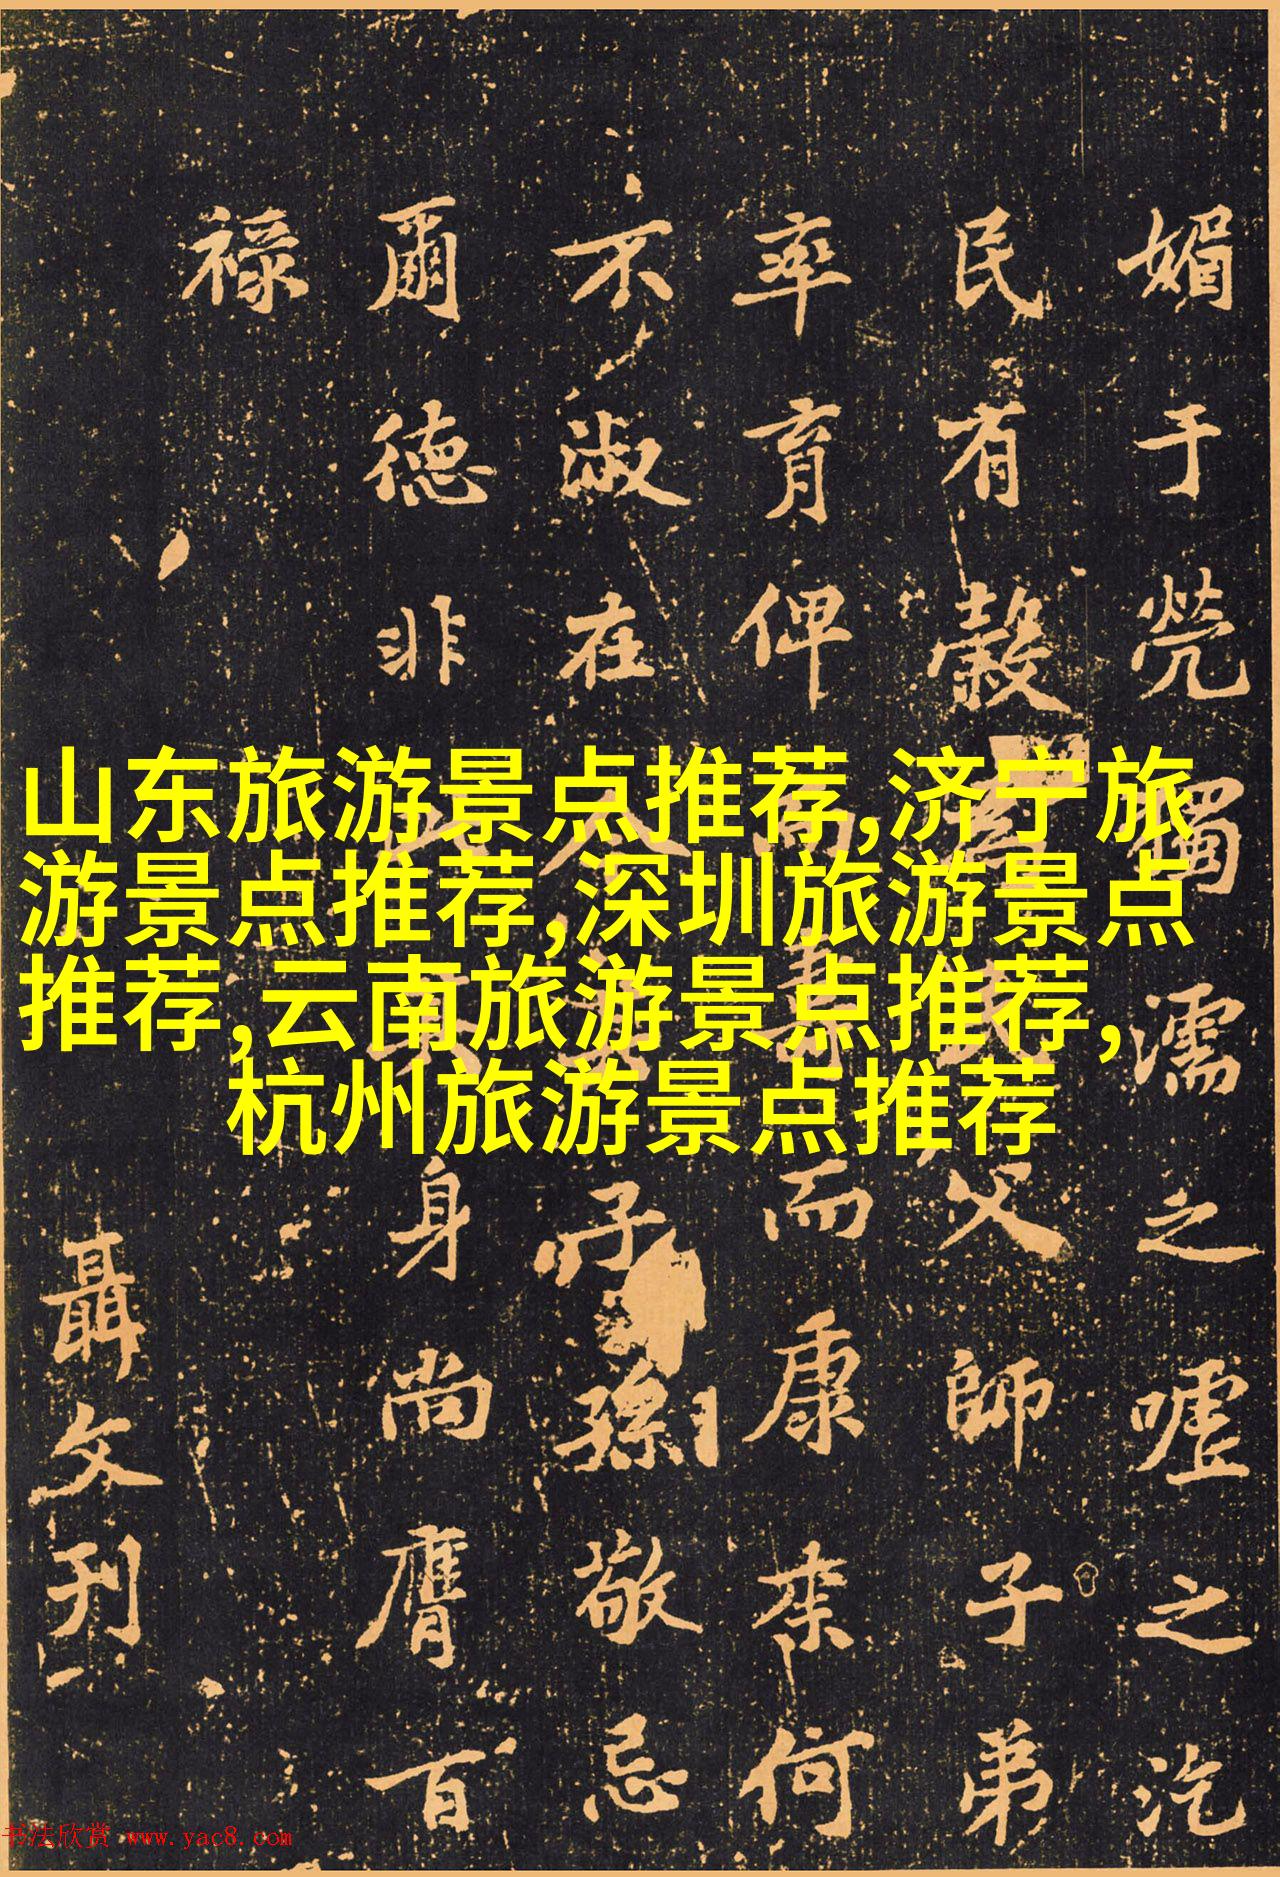 媚于煢獨濡之嘘之汔
民有穀民父師子弟
率育俾壽而康来何
不淑在人子孫敬忌
爾德非身尚膺百
禄
聶文刊
山东旅游景点推荐,济宁旅
游景点推荐,深圳旅游景点
推荐,云南旅游景点推荐,
杭州旅游景点推荐
书法欣赏 www.yac8.com